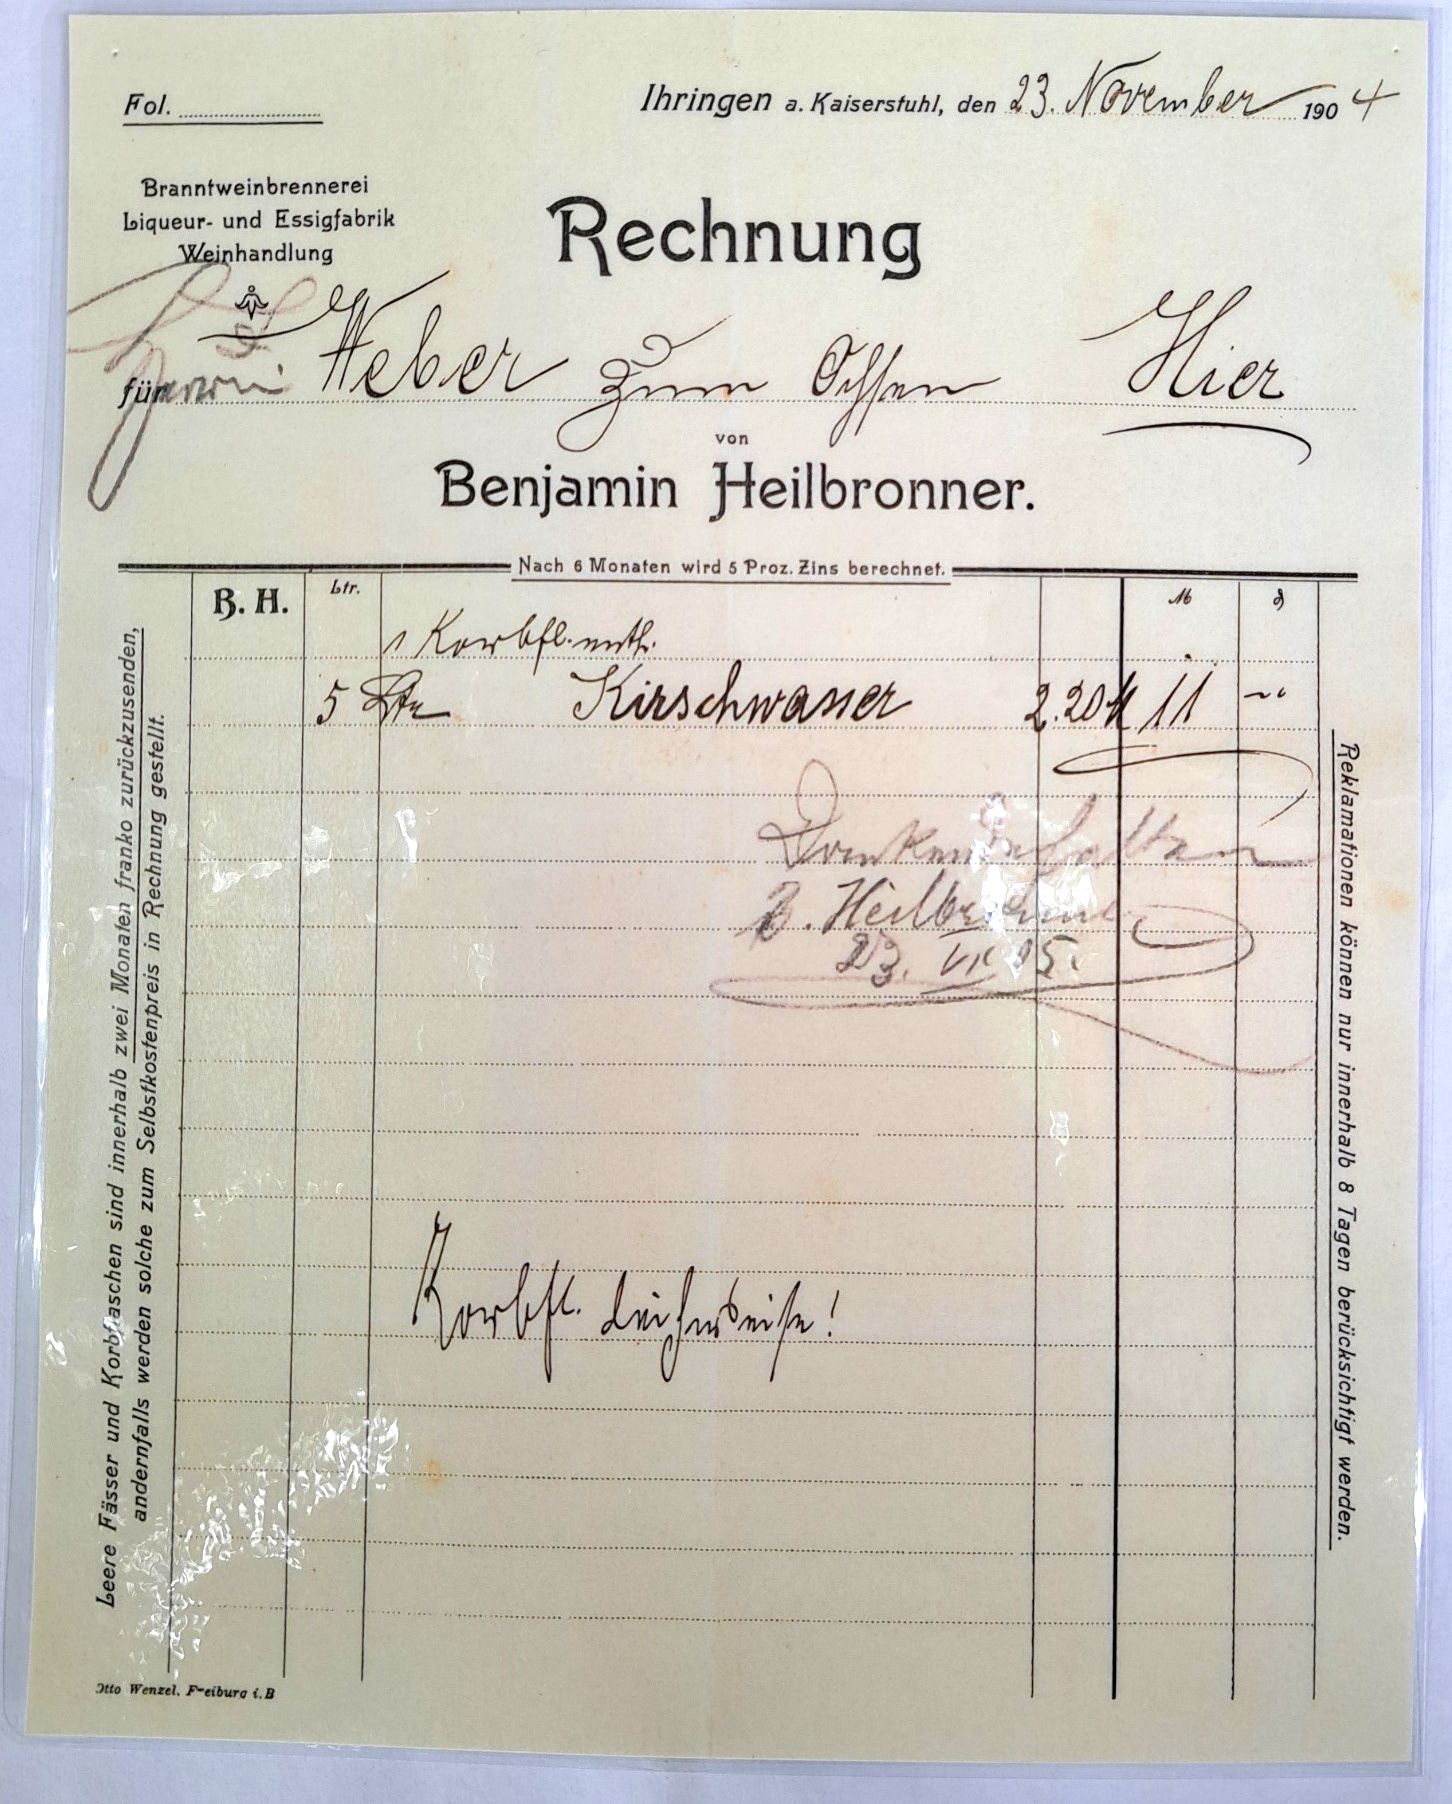 Fol.
Ihringen a. Kaiserstuhl, den 23. November 1904
Branntweinbrennerei
Liqueur- und Essigfabrik
Weinhandlung
Rechnung
für Weber zum Ochsen Hier
von
Benjamin Heilbronner.
Nach 6 Monaten wird 5 Proz. Zins berechnet.
B. H. Ltr. M ₰
1 Korbfl. enth.
5 Ltr Kirschwasser 2.20 M 11 -"
Dankend erhalten
B. Heilbronner
23. VI 05.
Korbfl. leihweise!
Leere Fässer und Korbflaschen sind innerhalb zwei Monaten franko zurückzusenden,
andernfalls werden solche zum Selbstkostenpreis in Rechnung gestellt.
Reklamationen können nur innerhalb 8 Tagen berücksichtigt werden.
Otto Wenzel, Freiburg i. B